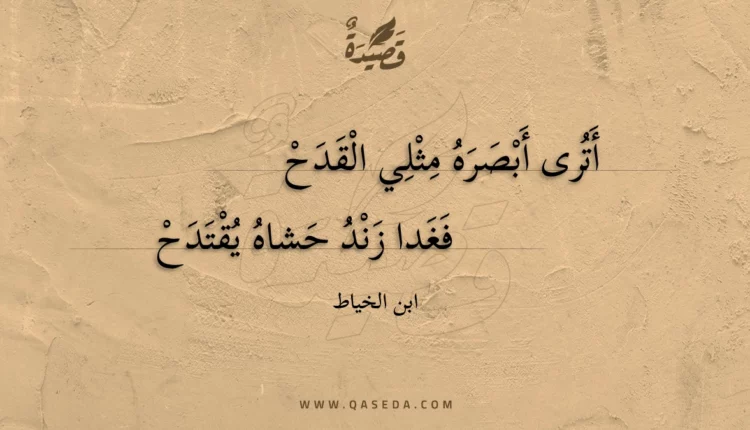 قَصِيدَةٌ
أَتُرى أَبْصَرَهُ مِثْلِي الْقَدَحْ
فَغَدا زَنْدُ حَشاهُ يُقْتَدَحْ
ابن الخياط
WWW.QASEDA.COM